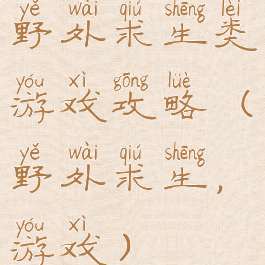 yě wài qiú shēng lèi
野外求生类
yóu xì gōng lüè
游戏攻略（
yě wài qiú shēng
野外求生，
yóu xì
游戏）